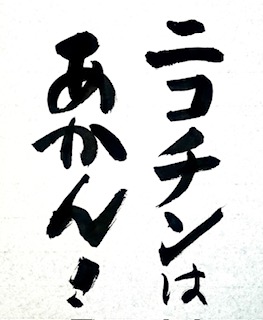 ニコチンは
あかん!